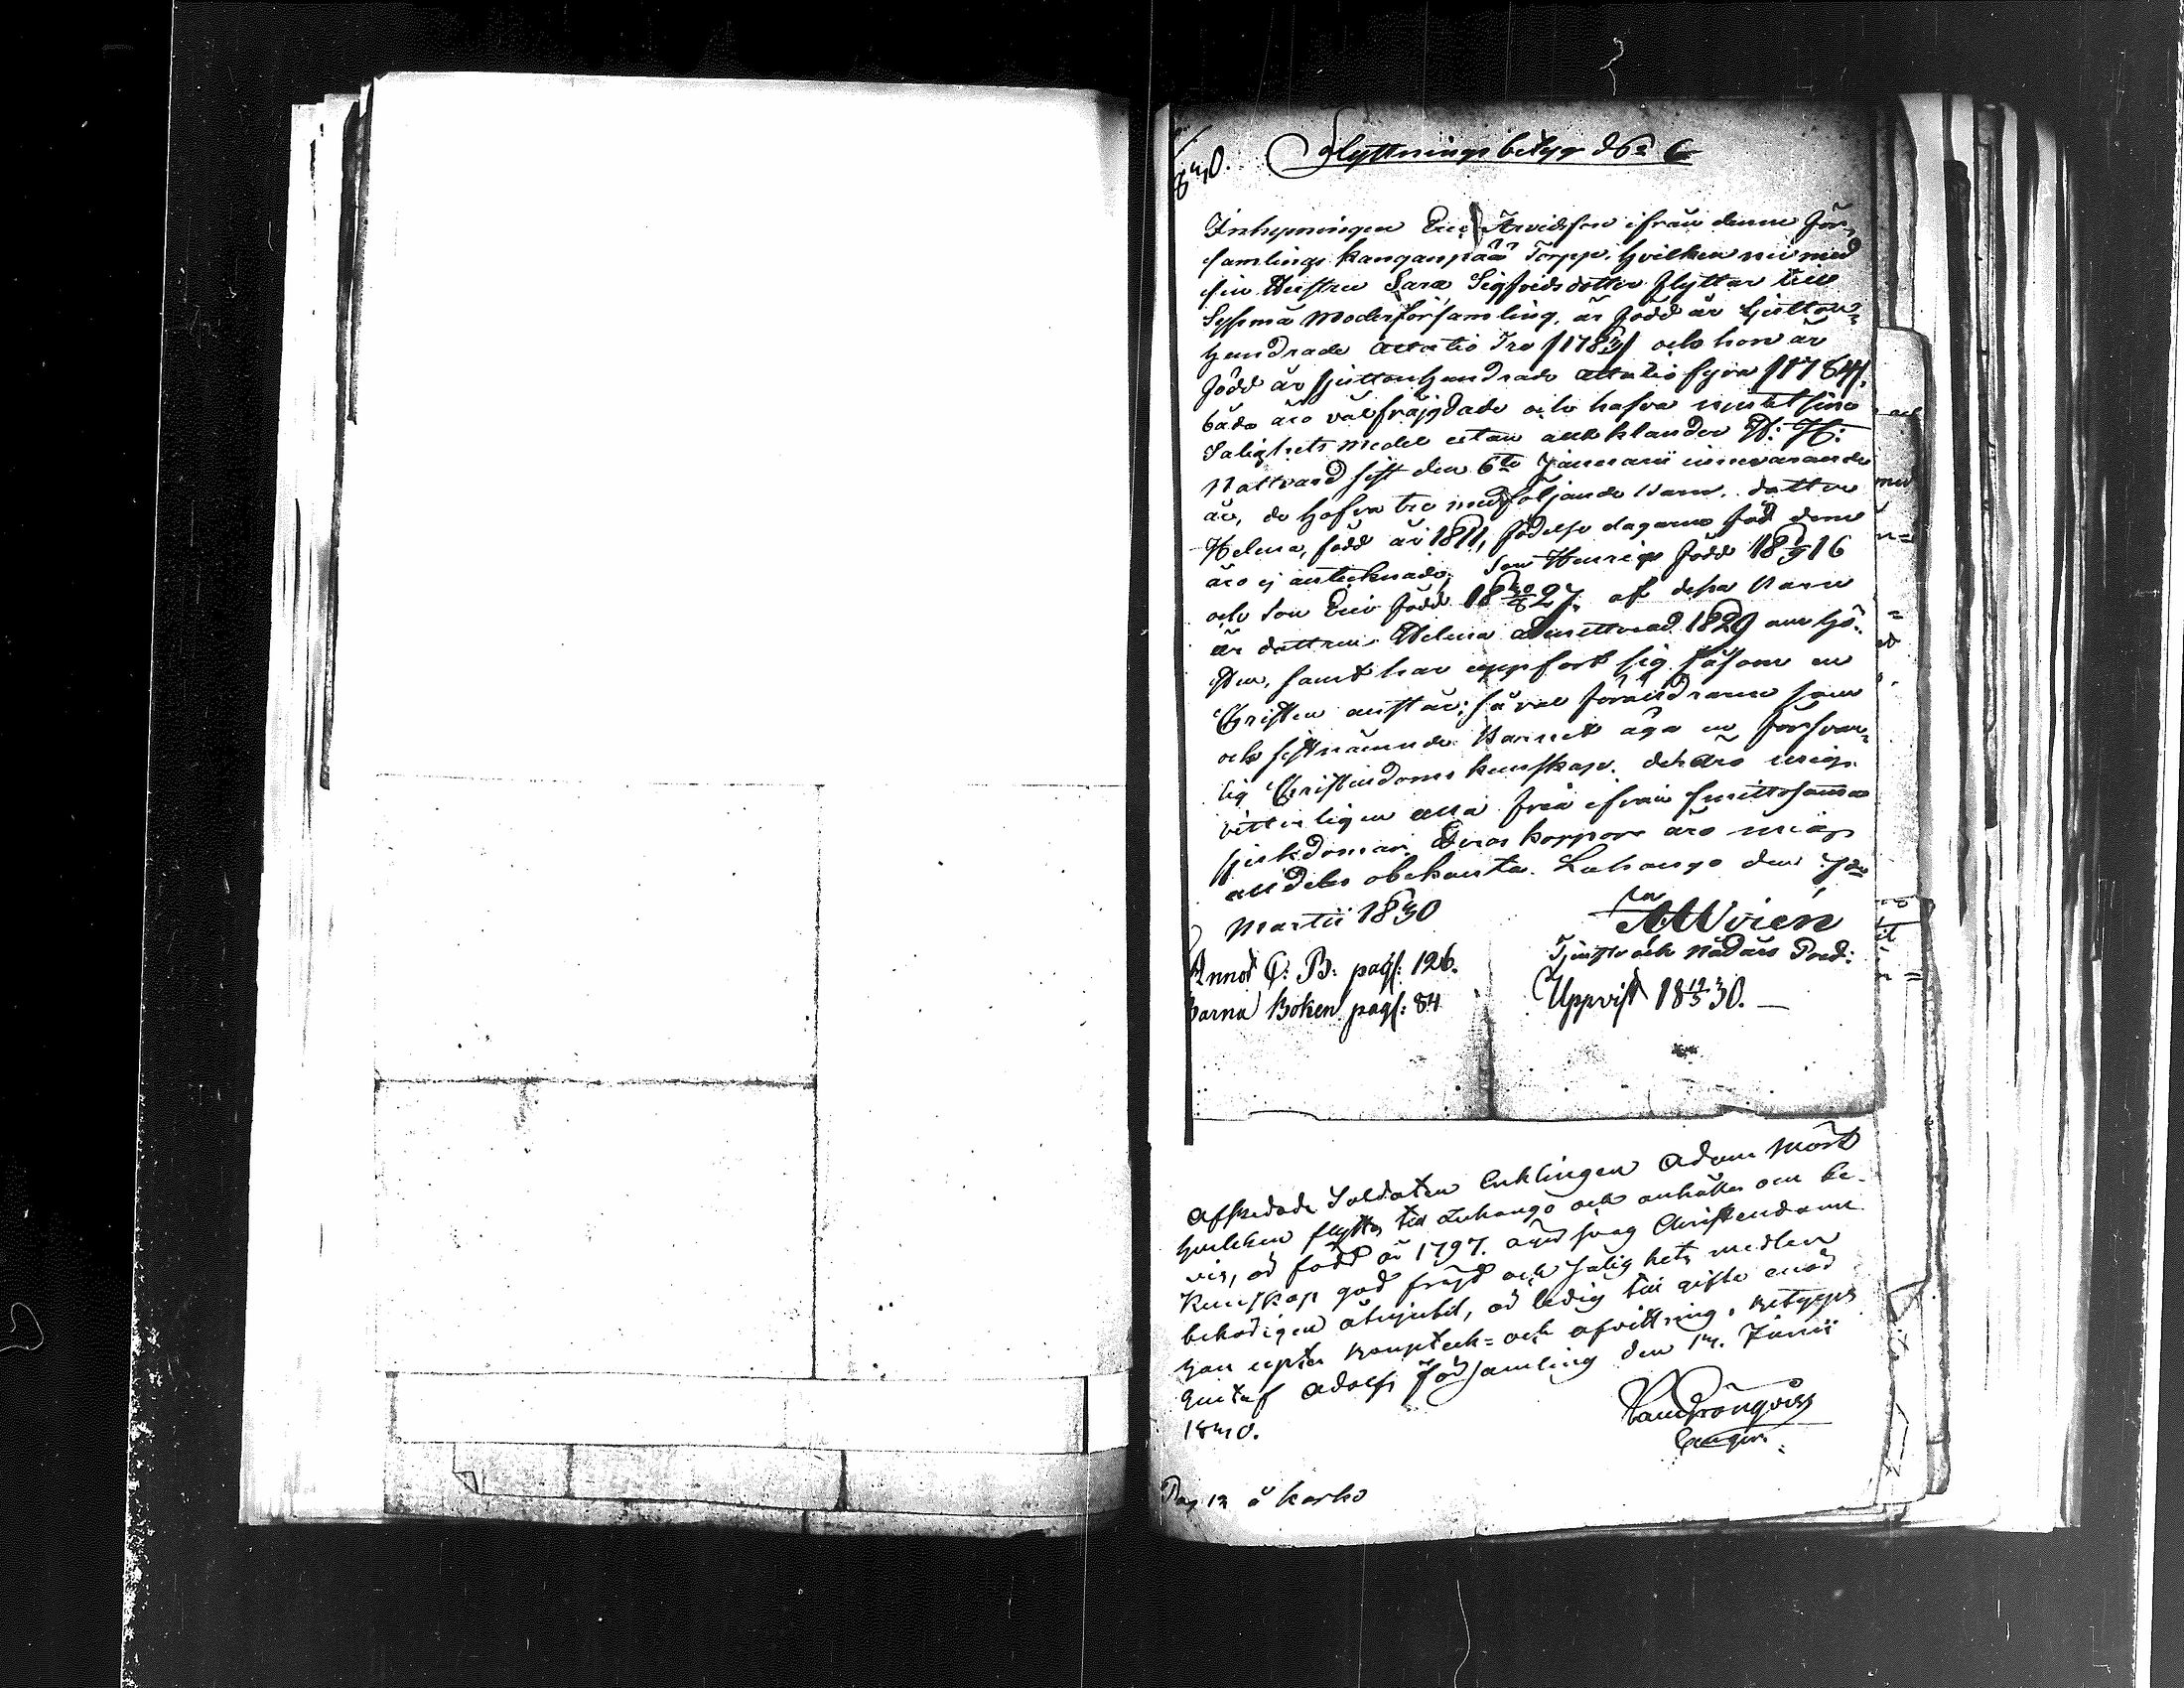 1830. Flyttningsbetyg No 6
Inhysningen Eric Arvidsson ifrån denne För-
samlings Kanganpää Torpp, hvilken nu med
sin Hustru Sara Sigfridsdotter flyttar till
Sysmä Moderförsamling, är född år Sjutton-
hundrade åttatio Tre /1783/ och hon är
född år sjuttonhundrade åttatio fyra /1784/,
både äro välfräjgdade och hafva njutit sine
Salighets medel utan allt klander H: H:
Nattvard sist den 6te Januarii innevarande
år, de hafva tre medföljande Barn, dottren
Helena, född år 1811, födelse dagarne för denne
äro ej antecknade, Son Henric född 18 16
och Son Eric född 18 27, af dessa Barn
är dottren Helena admitterad 1829 om hö-
sten, samt har uppfört sig såsom en
Christen anstår; så väl föräldrarne som
och sistnämnde Barnet äga en försvar-
lig Christendoms kunskap. och äro mig
vitterligen alla fria ifrån smittosamma
sjukdomar. Deras koppor äro mig
alldeles obekanta. Luhango den 7de
Martii 1830
A Wirén
Tjenstg och Nådårs Pred:
Annot C: B: pag: 126.
Barna Boken pag: 84
Uppvist 18 12/3 30.
Afskedade Soldaten Enklingen Adam Mört
hvilken flyttar till Luhango och anhåller om be-
vis, är född år 1797. äger svag Christendoms
Kunskap god fräjd och Salighets medlen
behörigen åtnjutit, är ledig till gifte emot
han upter Boupteck- och afvittring, betygar
Gustaf Adolfs Församling den 14. Junii
1830.
Pag 12 å Karho